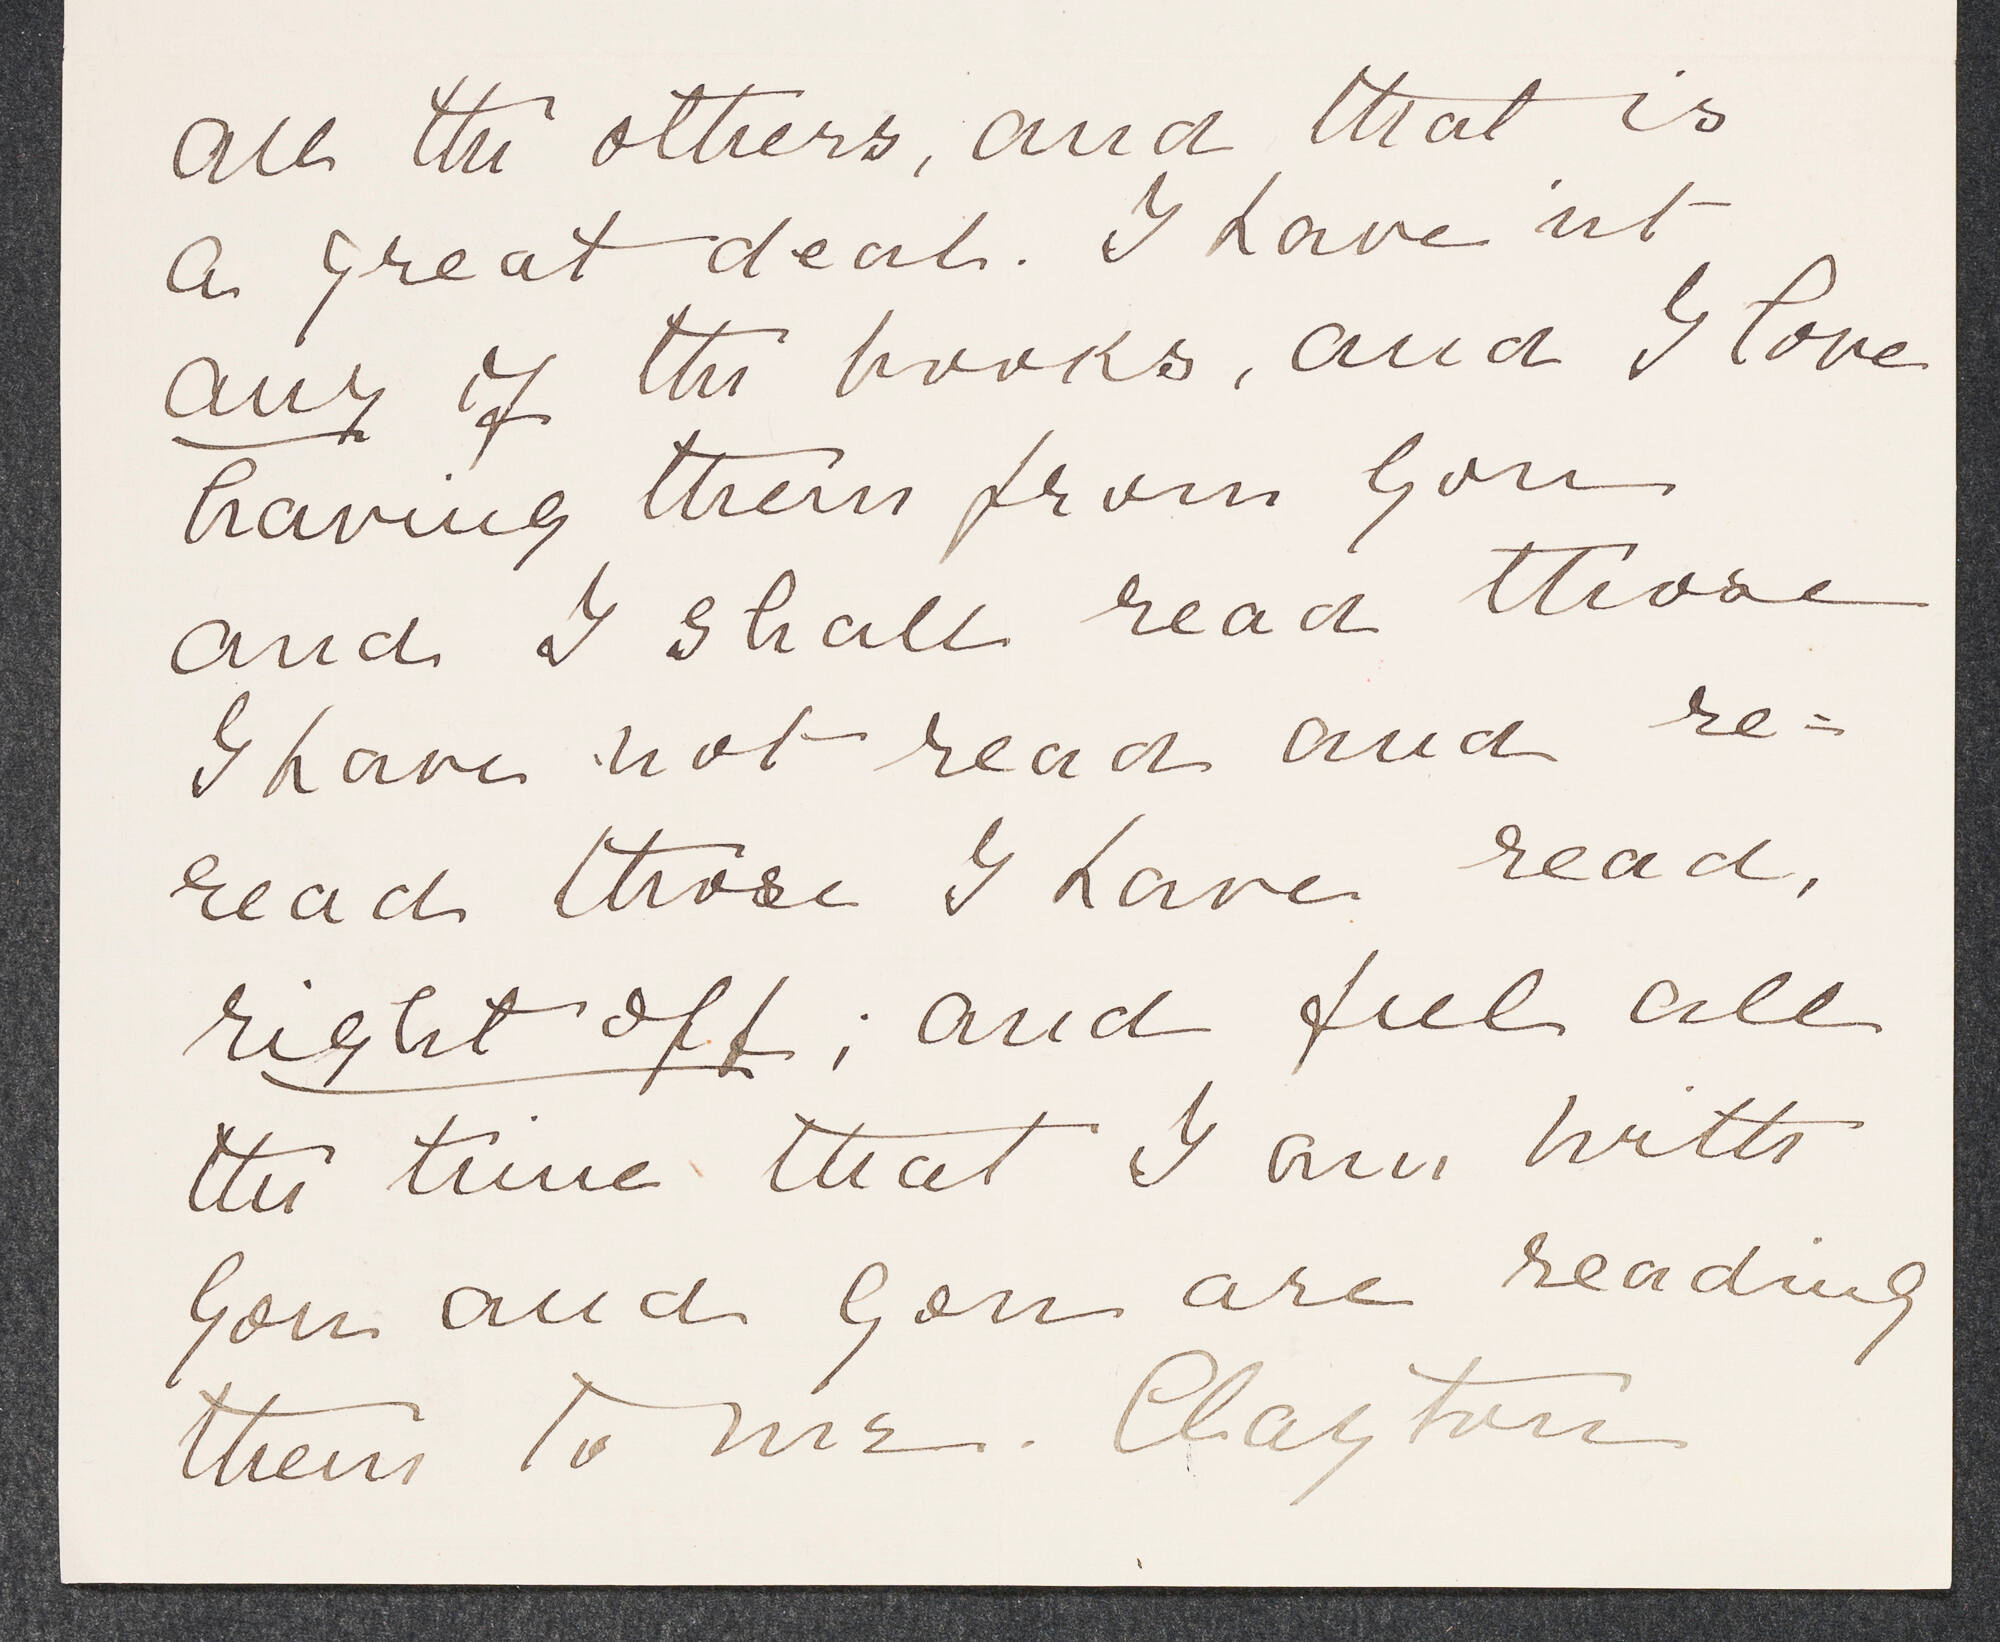 all the others, and that is
a great deal. I have'nt
any of the books, and I love
having them from you
and I shall read those
I have not read and re=
read those I have read,
right off; and feel all
the time that I am with
you and you are reading
them to me. Clayton